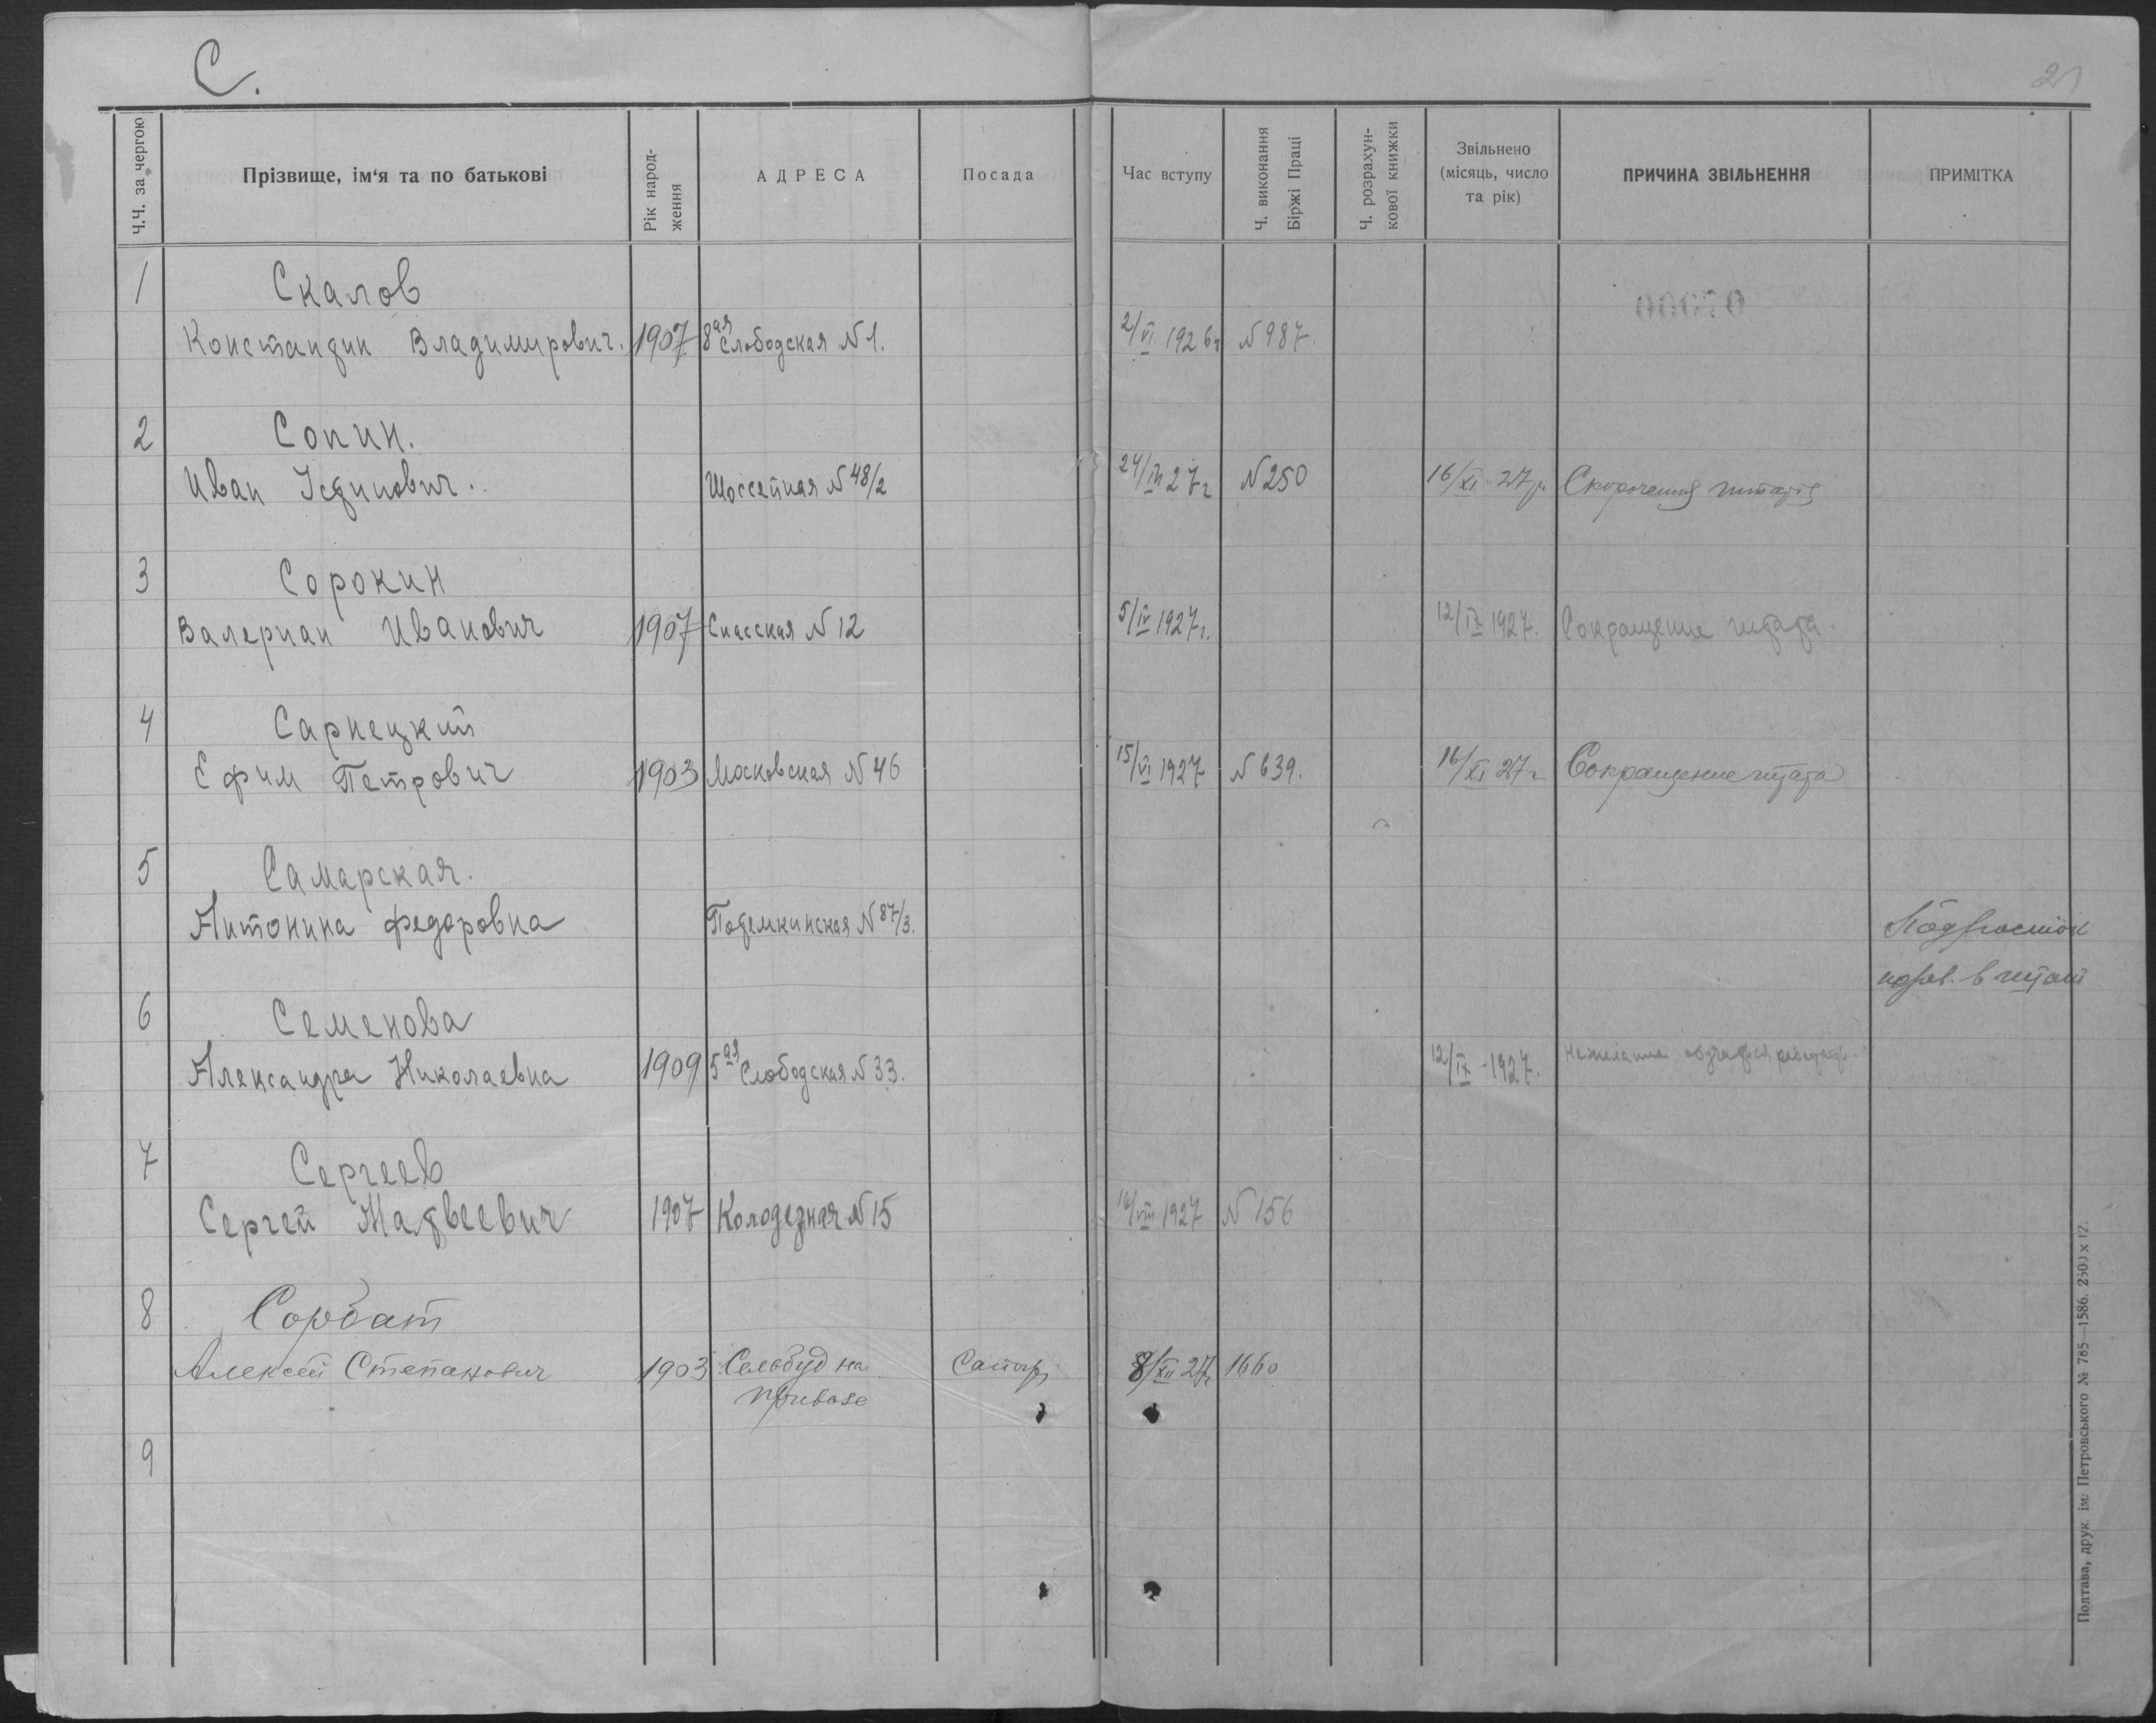 С.
21
Ч.Ч. за чергою
Прізвище, ім‘я та по батькові
Рік народ-
ження
АДРЕСА
Посада
Час вступу
Ч. виконання
Біржі Праці
Ч. розрахун-
кової книжки
Звільнено
(місяць, число
та рік)
ПРИЧИНА ЗВІЛЬНЕННЯ
ПРИМІТКА
1 Скалов
Константин Владимирович. 1907 8ая Слободская №1. 2/VI 1926г №987.
2 Сопин.
Иван Устинович. Шоссейная №48/2 24/III 27г №250 16/XI-27р. Скорочення штатів
3 Сорокин
Валериан Иванович 1907 Спасская №12 5/IV 1927г. 12/IX 1927. Сокращение штата.
4 Сарнецкий
Ефим Петрович 1903 Московская №46 15/VI 1927 №639. 16/XI 27г Сокращение штата
5 Самарская.
Антонина Федоровна Потемкинская №87/3. Подросток
в штат
6 Семенова
Александра Николаевна 1909 5ая Слободская №33. 12/IX-1927. Нежелание
7 Сергеев
Сергей Матвеевич 1907 Колодезная №15 16/VIII 1927 №156
8 Сорбат
Алексей Степанович 1903 Сельбуд на 8/XII 27г 1660
привозе
9
Полтава, друк. ім. Петровського № 785—1586. 2500 х 12.